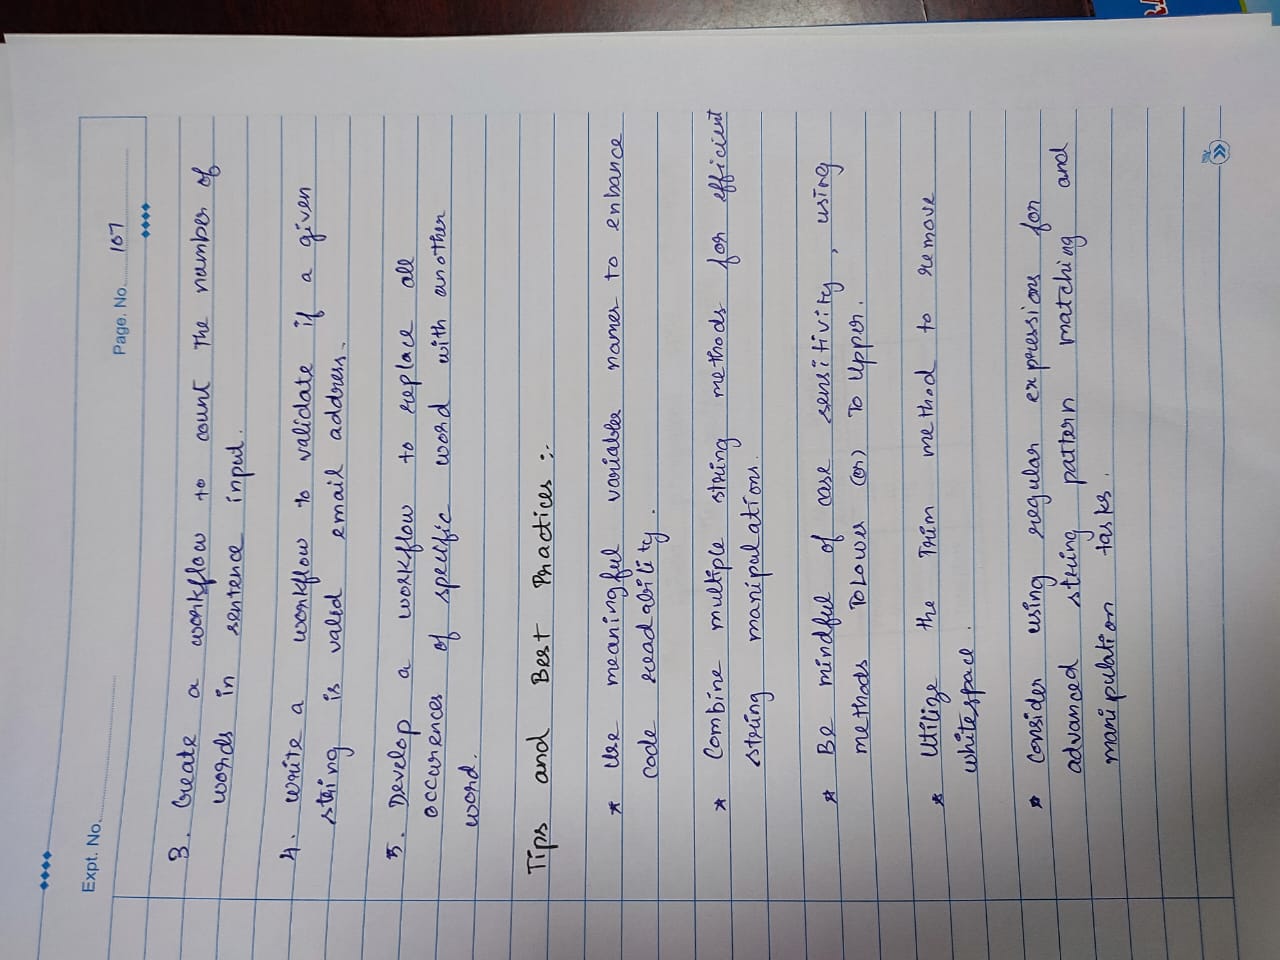 Expt. No.
Page. No. 107
3. Create a workflow to count The number of
words in sentence input.
4. write a workflow to validate if a given
string is valid email address.
5. Develop a workflow to replace all
occurences of specific word with another
word.
Tips and Best Practices :-
* Use meaningful variables names to enhance
code readability.
* Combine multiple string methods for efficient
string manipulations.
* Be mindful of case sensitivity, using
methods ToLower (or) To Upper.
* Utilize the Trim method to remove
whitespace.
* Consider using regular expressions for
advanced string pattern matching and
manipulation tasks.